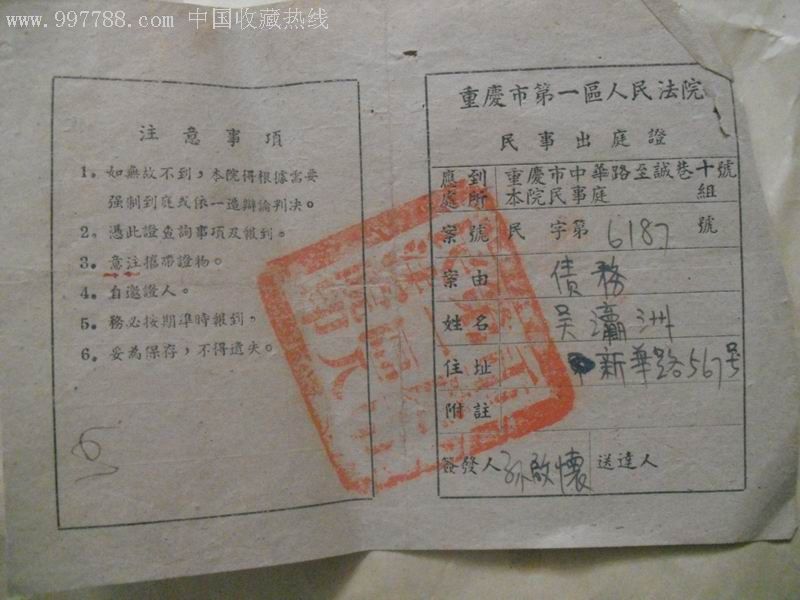 www.997788.com 中国收藏热线
注意事項
1。如無故不到，本院得根據需要
强制到庭或依一造辯論判决。
2。憑此證查詢事項及報到。
3。意注攜帶證物。
4。自邀證人。
5。務必按期準時報到，
6。妥為保存，不得遺失。
重慶市第一區人民法院
民事出庭證
應到處所 重慶市中華路至誠巷十號
本院民事庭 組
案號 民字第 6187 號
案由 債務
姓名 吴瀟洲
住址 新華路567号
附註
簽發人 孙啟懷 送達人